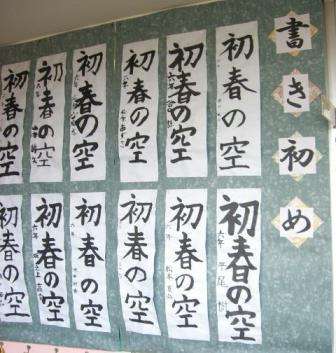 書き初め
初春の空
初春の空
六年
初春の空
初春の空
初春の空
初春の空
初春の空
六年
初春の空
六年
初春の空
初春の空
初春の空
六年
初春の空